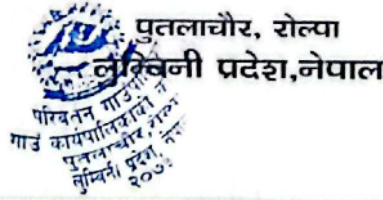 पुतलाचौर, रोल्पा
लुम्बिनी प्रदेश,नेपाल
परिवर्तन गाउँपा
गाउँ कार्यपालिकाको
पुतलाचौर, रोल्पा
लुम्बिनी प्रदेश, नेपाल